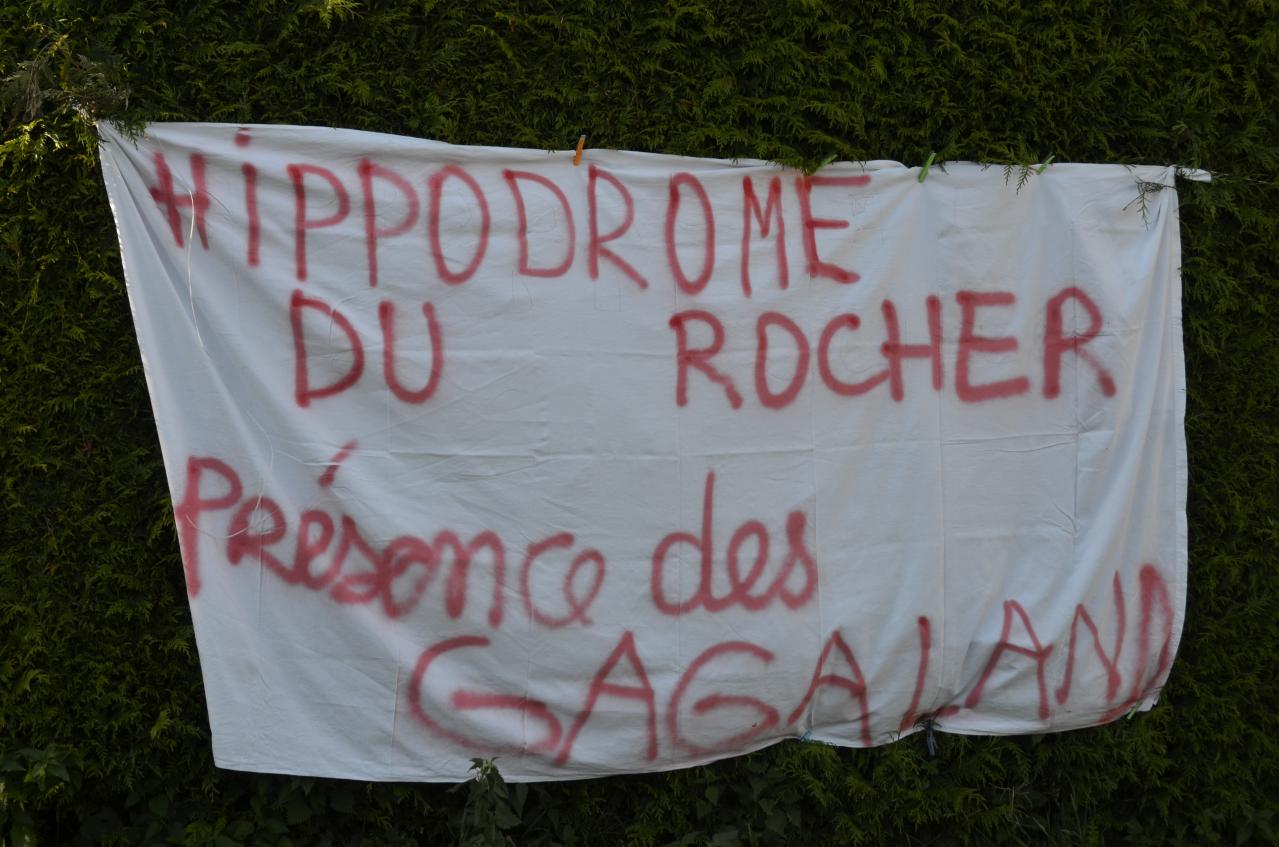 HiPPODROME
DU ROCHER
Présence des
GAGALAND